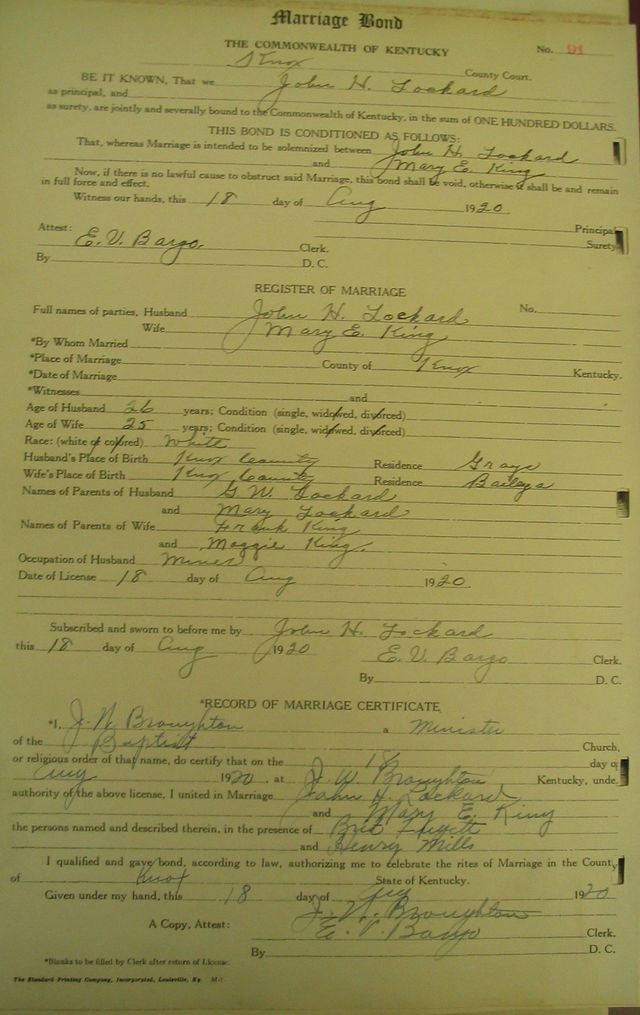 Marriage Bond
THE COMMONWEALTH OF KENTUCKY No. 91
Knox County Court.
BE IT KNOWN, That we John H. Lockard
as principal, and
as surety, are jointly and severally bound to the Commonwealth of Kentucky, in the sum of ONE HUNDRED DOLLARS.
THIS BOND IS CONDITIONED AS FOLLOWS:
That, whereas Marriage is intended to be solemnized between John H. Lockard
and Mary E. King
Now, if there is no lawful cause to obstruct said Marriage, this bond shall be void, otherwise it shall be and remain
in full force and effect.
Witness our hands, this 18 day of Aug 1920
Principal
Surety
Attest: E. V. Bargo. Clerk.
By D. C.
REGISTER OF MARRIAGE
Full names of parties, Husband John H. Lockard No.
Wife Mary E. King
*By Whom Married
*Place of Marriage County of Knox Kentucky.
*Date of Marriage
*Witnesses and
Age of Husband 26 years; Condition (single, widowed, divorced)
Age of Wife 25 years; Condition (single, widowed, divorced)
Race: (white or colored) White
Husband's Place of Birth Knox County Residence Grays
Wife's Place of Birth Knox County Residence Baileys
Names of Parents of Husband G. W. Lockard
and Mary Lockard
Names of Parents of Wife Frank King
and Maggie King.
Occupation of Husband Miner
Date of License 18 day of Aug 1920
Subscribed and sworn to before me by John H. Lockard
this 18 day of Aug 1920 E. V. Bargo Clerk.
By D. C.
*RECORD OF MARRIAGE CERTIFICATE
*I, J. N. Broughton a Minister
of the Baptist Church,
or religious order of that name, do certify that on the 18 day of
Aug 1920, at J. W. Broughton Kentucky, unde
authority of the above license, I united in Marriage John H. Lockard
and Mary E. King
the persons named and described therein, in the presence of
and Henry Mills
I qualified and gave bond, according to law, authorizing me to celebrate the rites of Marriage in the County
of Knox State of Kentucky.
Given under my hand, this 18 day of Aug 1920
J. N. Broughton
A Copy, Attest: E. V. Bargo Clerk.
By D. C.
*Blanks to be filled by Clerk after return of License.
The Standard Printing Company, Incorporated, Louisville, Ky.